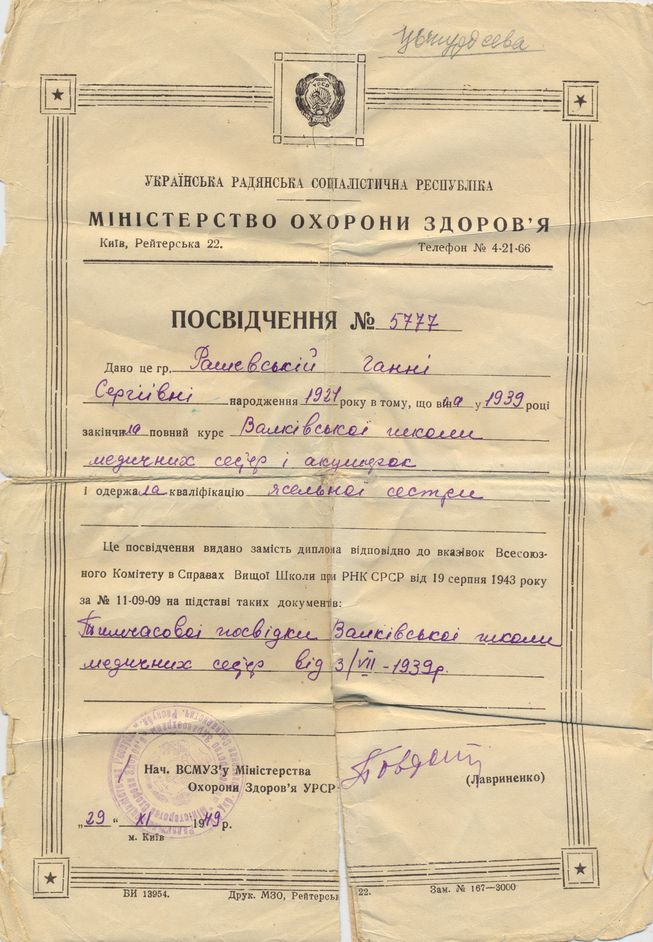 УКРАЇНСЬКА РАДЯНСЬКА СОЦІАЛІСТИЧНА РЕСПУБЛІКА
МІНІСТЕРСТВО ОХОРОНИ ЗДОРОВ'Я
Київ, Рейтерська 22. Телефон № 4-21-66
ПОСВІДЧЕННЯ № 5777
Дано це гр. Рашевській Ганні
Сергіївні народження 1921 року в тому, що вона у 1939 році
закінчила повний курс Валківської школи
медичних сестер і акушерок
і одержала кваліфікацію ясельної сестри
Це посвідчення видано замість диплома відповідно до вказівок Всесоюз-
ного Комітету в Справах Вищої Школи при РНК СРСР від 19 серпня 1943 року
за № 11-09-09 на підставі таких документів:
Тимчасової посвідки Валківської школи
медичних сестер від 3/VII-1939р.
Нач. ВСМУЗ'у Міністерства
Охорони Здоров'я УРСР
(Лавриненко)
„29" XI 1949 р.
м. Київ
БИ 13954. Друк. МЗО, Рейтерськ 22. Зам. № 167—3000